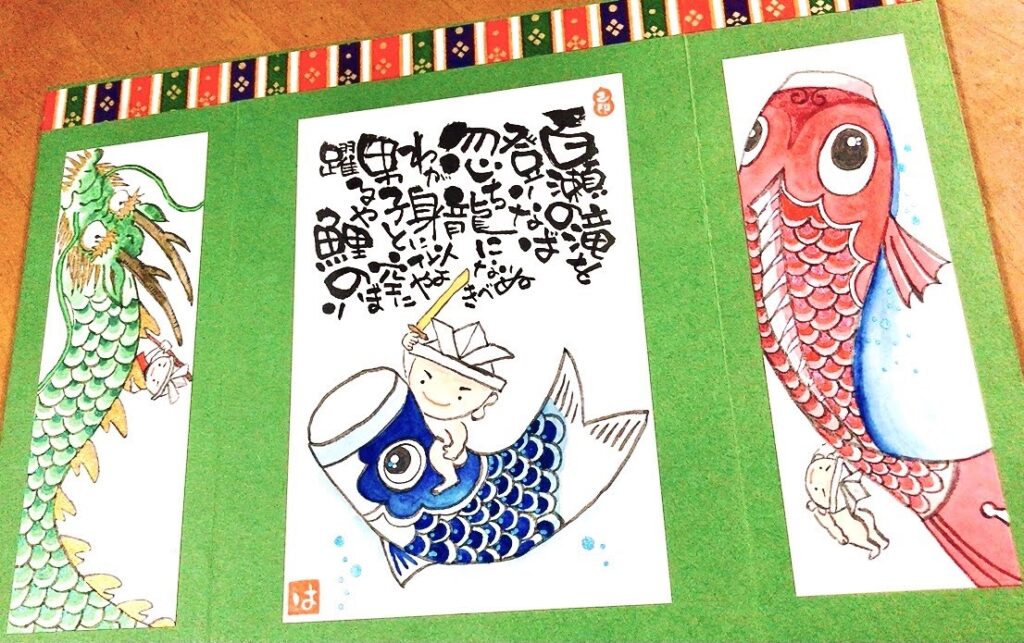 百瀬の滝を
登りなば
忽ち龍になりぬべき
わが身に似よや
男子と空に
躍るや鯉のぼり
は